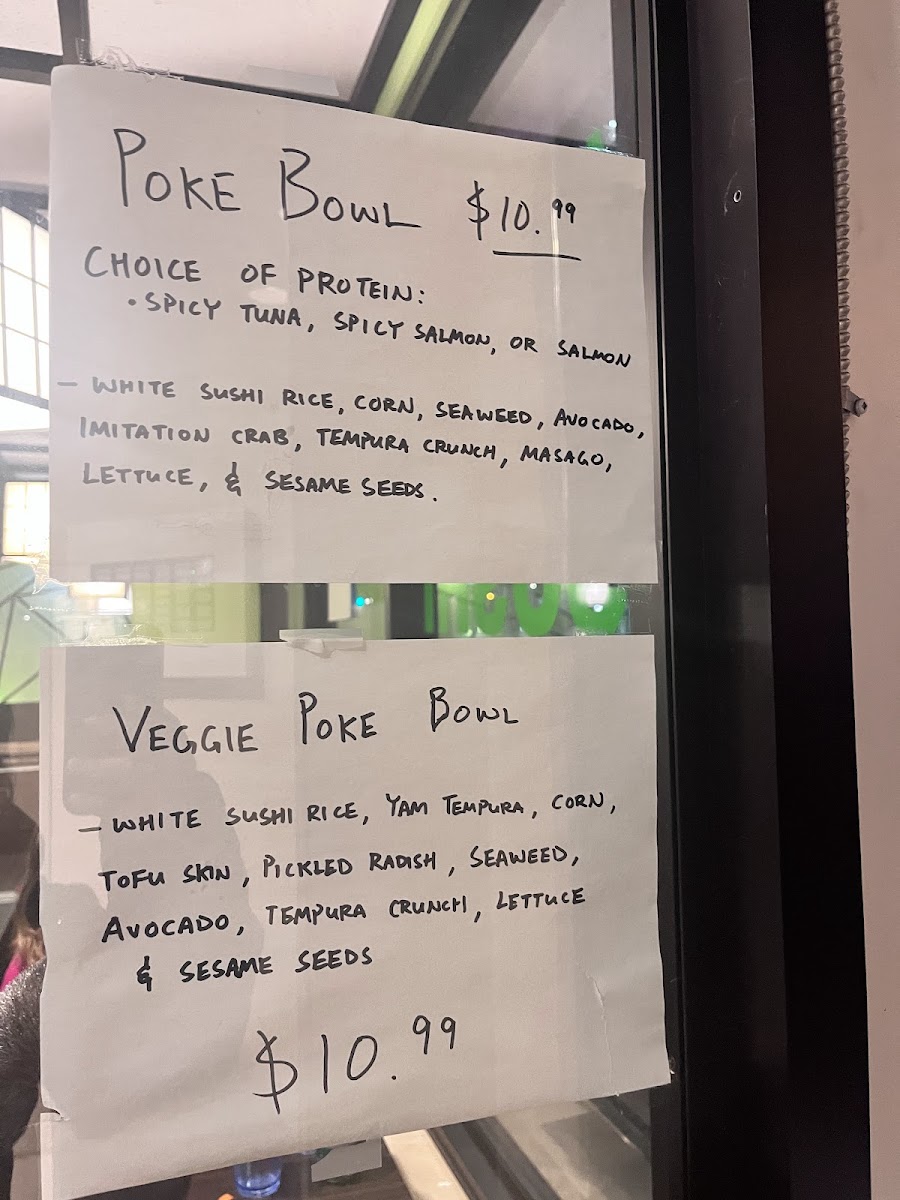 POKE BOWL $10.99
CHOICE OF PROTEIN:
• SPICY TUNA, SPICY SALMON, OR SALMON
- WHITE SUSHI RICE, CORN, SEAWEED, AVOCADO,
IMITATION CRAB, TEMPURA CRUNCH, MASAGO,
LETTUCE, & SESAME SEEDS.
VEGGIE POKE BOWL
- WHITE SUSHI RICE, YAM TEMPURA, CORN,
TOFU SKIN, PICKLED RADISH, SEAWEED,
AVOCADO, TEMPURA CRUNCH, LETTUCE
& SESAME SEEDS
$10.99